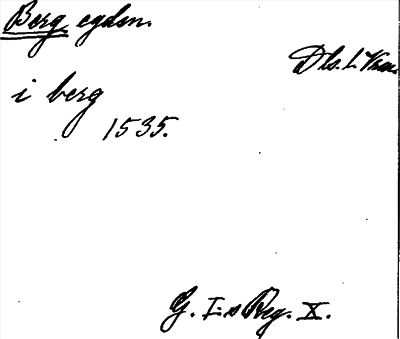 Berg. egdom.
Dls. L. Vm.
i berg
1535.
G. I:s Reg. X.